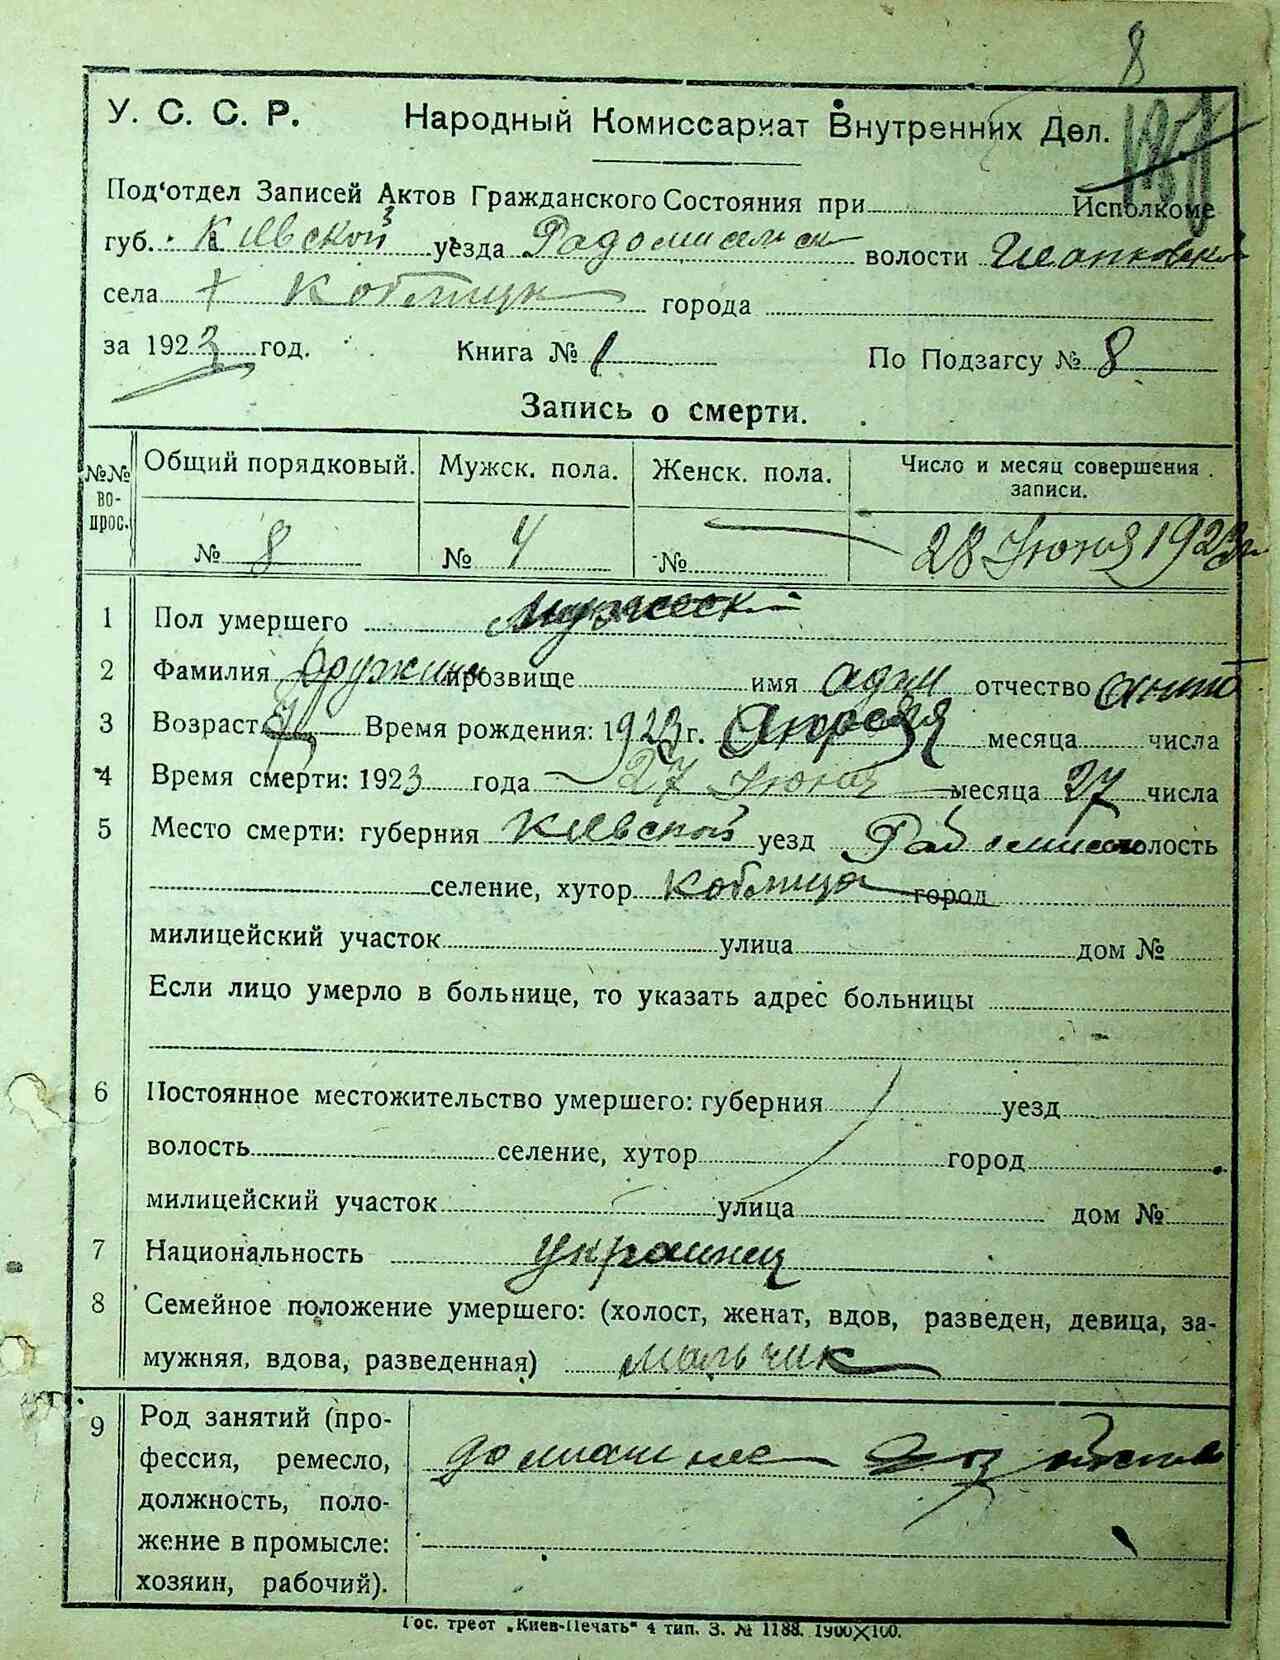 8
У. С. С. Р. Народный Комиссариат Внутренних Дел.
Под'отдел Записей Актов Гражданского Состояния при Исполкоме
губ. Киевской уезда Радомисльск волости
села Коблицк города
за 1923 год. Книга № 1 По Подзагсу № 8
Запись о смерти.
№№ вопрос. Общий порядковый. Мужск. пола. Женск. пола. Число и месяц совершения записи.
№ 8 № 4 № — 28 Июня 1923 г.
1 Пол умершего мужеск
2 Фамилия Дружин прозвище имя отчество
3 Возраст Время рождения: 1923 г. Апреля месяца числа
4 Время смерти: 1923 года 27 Июня месяца 27 числа
5 Место смерти: губерния Киевской уезд Радомисл волость
селение, хутор Коблица город
милицейский участок улица дом №
Если лицо умерло в больнице, то указать адрес больницы
6 Постоянное местожительство умершего: губерния уезд
волость селение, хутор город
милицейский участок улица дом №
7 Национальность украинец
8 Семейное положение умершего: (холост, женат, вдов, разведен, девица, за-
мужняя, вдова, разведенная) мальчик
9 Род занятий (про-
фессия, ремесло, домашнее
должность, поло-
жение в промысле:
хозяин, рабочий).
Гос. трест „Киев-Печать" 4 тип. З. № 1188. 1900×100.